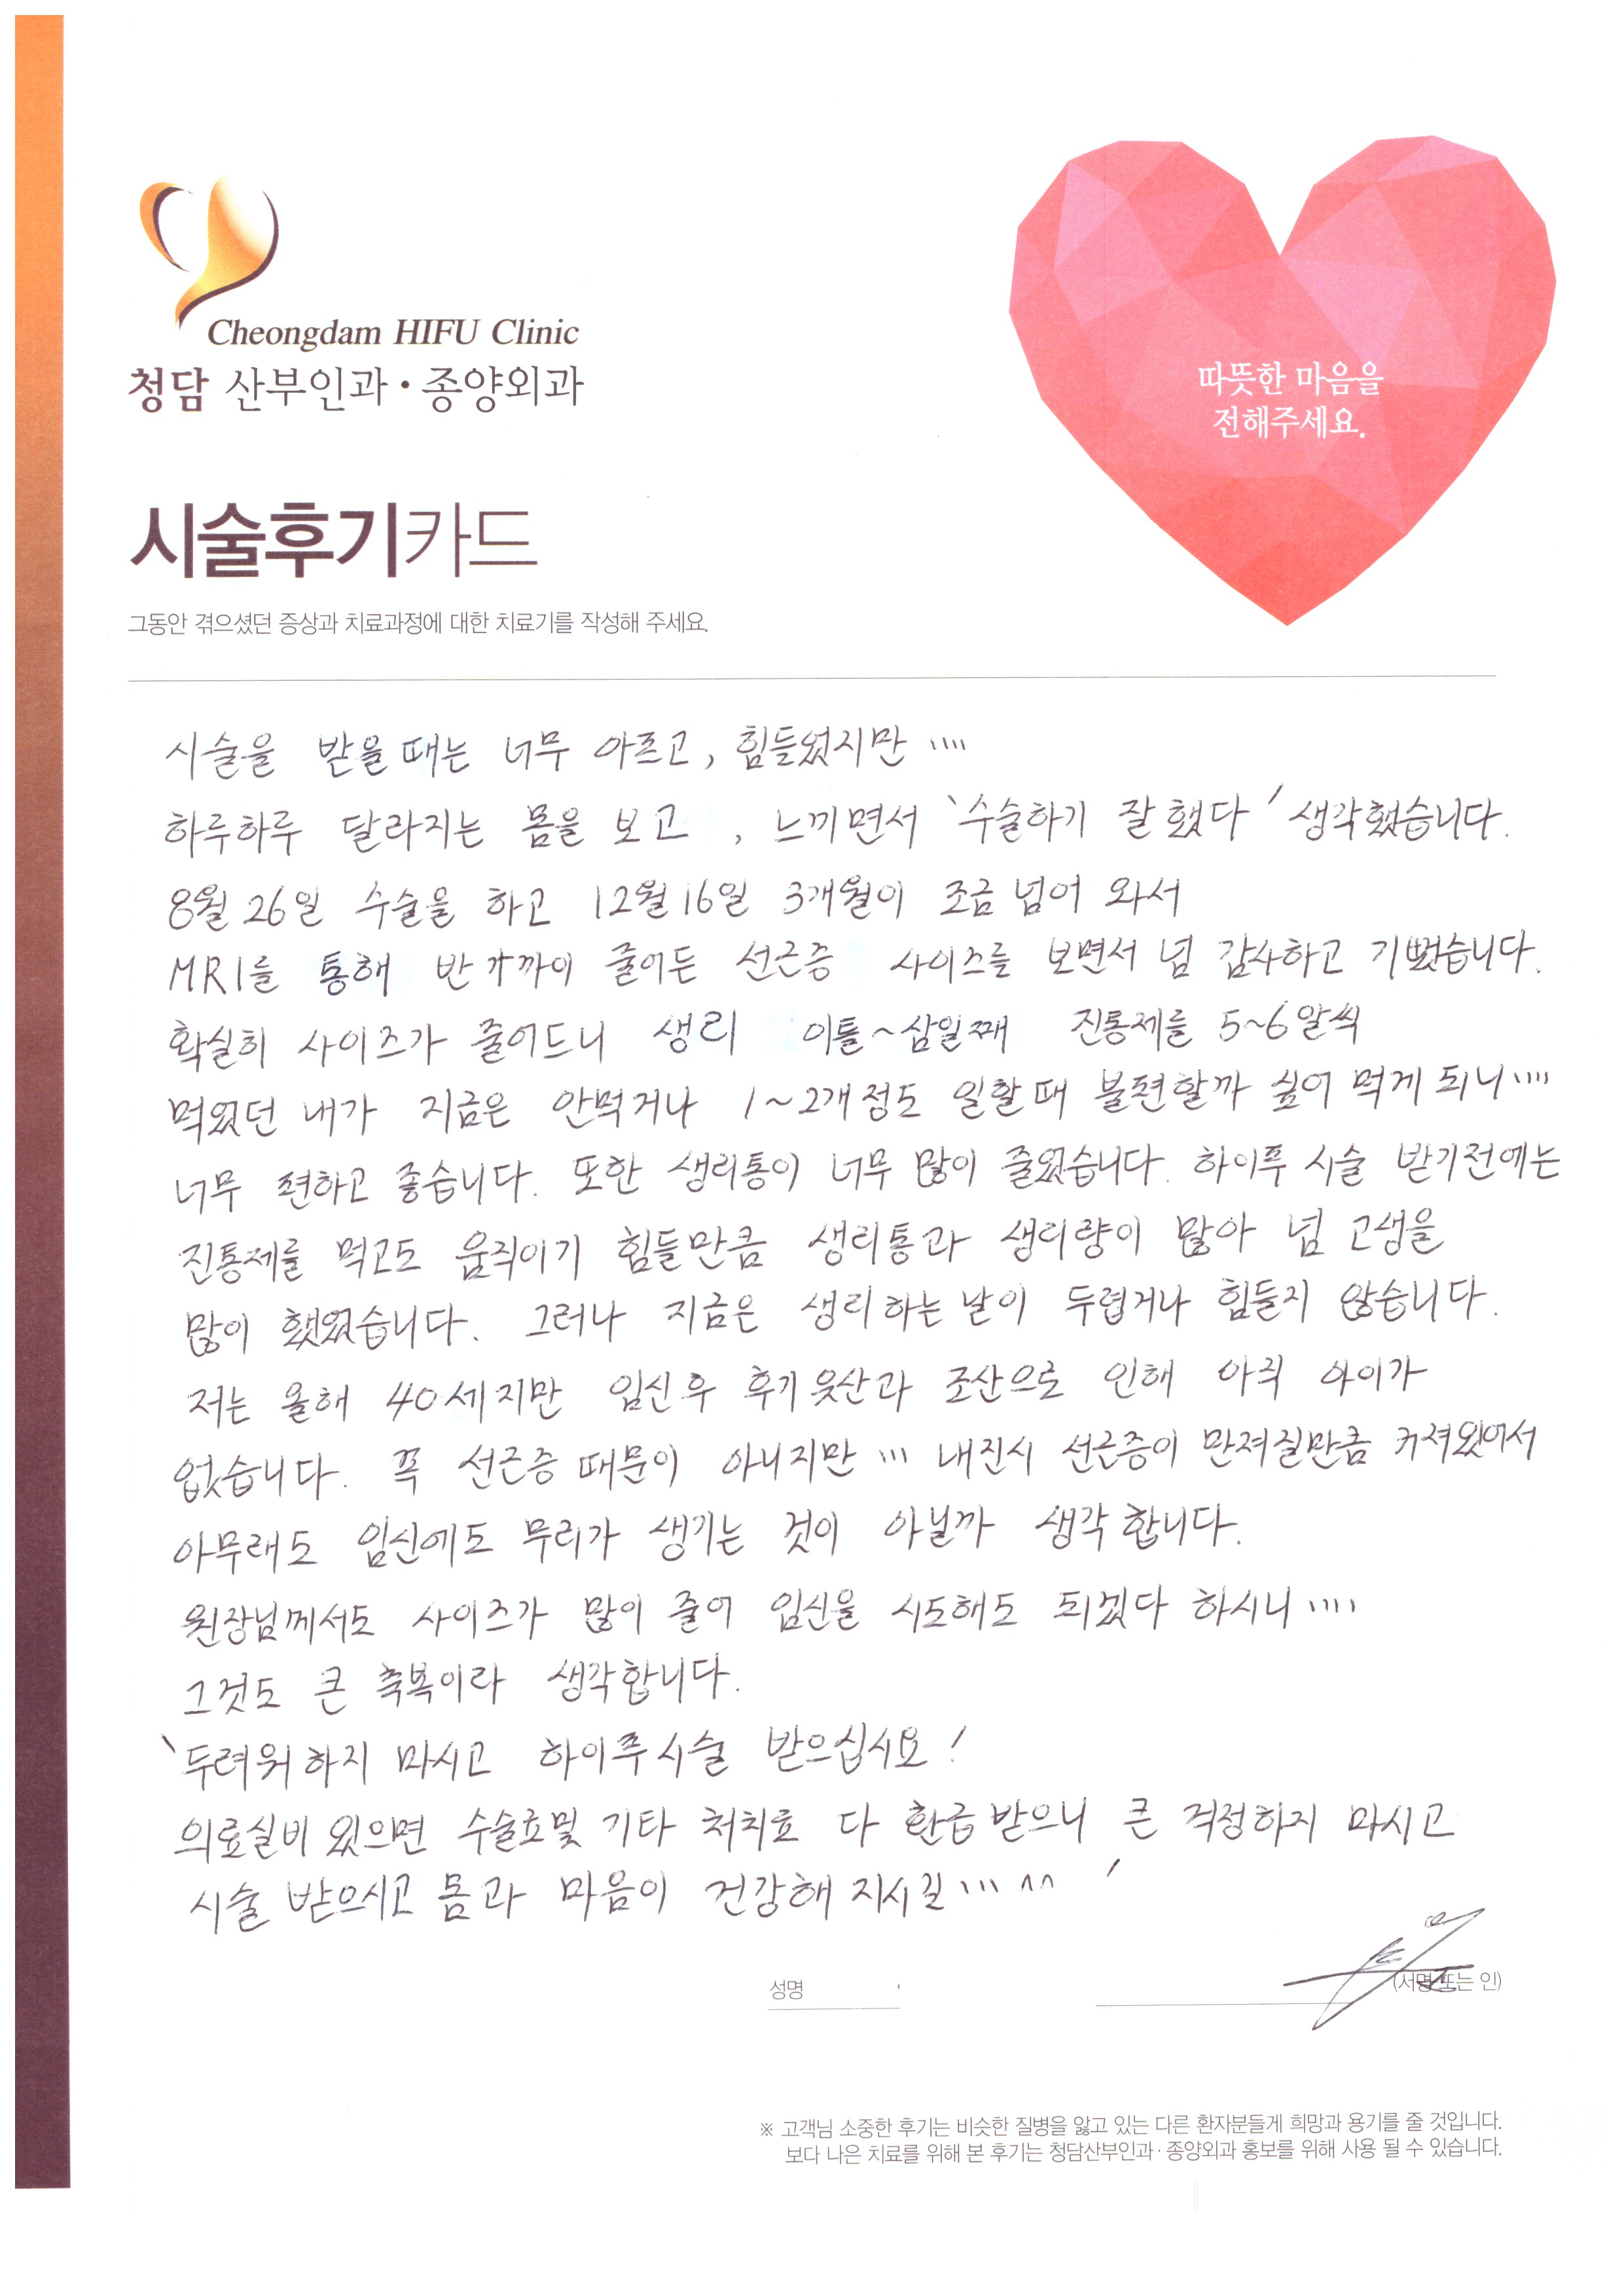 Cheongdam HIFU Clinic
청담 산부인과 · 종양외과
따뜻한 마음을
전해주세요.
시술후기카드
그동안 겪으셨던 증상과 치료과정에 대한 치료기를 작성해 주세요.
시술을 받을때는 너무 아프고, 힘들었지만 ....
하루하루 달라지는 몸을 보고 , 느끼면서 '수술하기 잘했다' 생각했습니다.
8월 26일 수술을 하고 12월 16일 3개월이 조금 넘어 와서
MRI를 통해 반가까이 줄어든 선근증 사이즈를 보면서 넘 감사하고 기뻤습니다.
확실히 사이즈가 줄어드니 생리 이틀~삼일째 진통제를 5~6알씩
먹었던 내가 지금은 안먹거나 1~2개정도 일할때 불편할까 싶어 먹게 되니....
너무 편하고 좋습니다. 또한 생리통이 너무 많이 줄었습니다. 하이푸 시술 받기전에는
진통제를 먹고도 움직이기 힘들만큼 생리통과 생리량이 많아 넘 고생을
많이 했었습니다. 그러나 지금은 생리하는 날이 두렵거나 힘들지 않습니다.
저는 올해 40세지만 임신후 후기유산과 조산으로 인해 아직 아이가
없습니다. 꼭 선근증 때문이 아니지만 ... 내진시 선근증이 만져질만큼 커져있어서
아무래도 임신에도 무리가 생기는 것이 아닐까 생각합니다.
원장님께서도 사이즈가 많이 줄어 임신을 시도해도 되겠다 하시니....
그것도 큰 축복이라 생각합니다.
'두려워하지 마시고 하이푸시술 받으십시요!
의료실비 있으면 수술료및 기타 처치료 다 환급받으니 큰 걱정하지 마시고
시술 받으시고 몸과 마음이 건강해 지시길... ^^ '
성명 (서명 또는 인)
※ 고객님 소중한 후기는 비슷한 질병을 앓고 있는 다른 환자분들게 희망과 용기를 줄 것입니다.
보다 나은 치료를 위해 본 후기는 청담산부인과 · 종양외과 홍보를 위해 사용 될 수 있습니다.